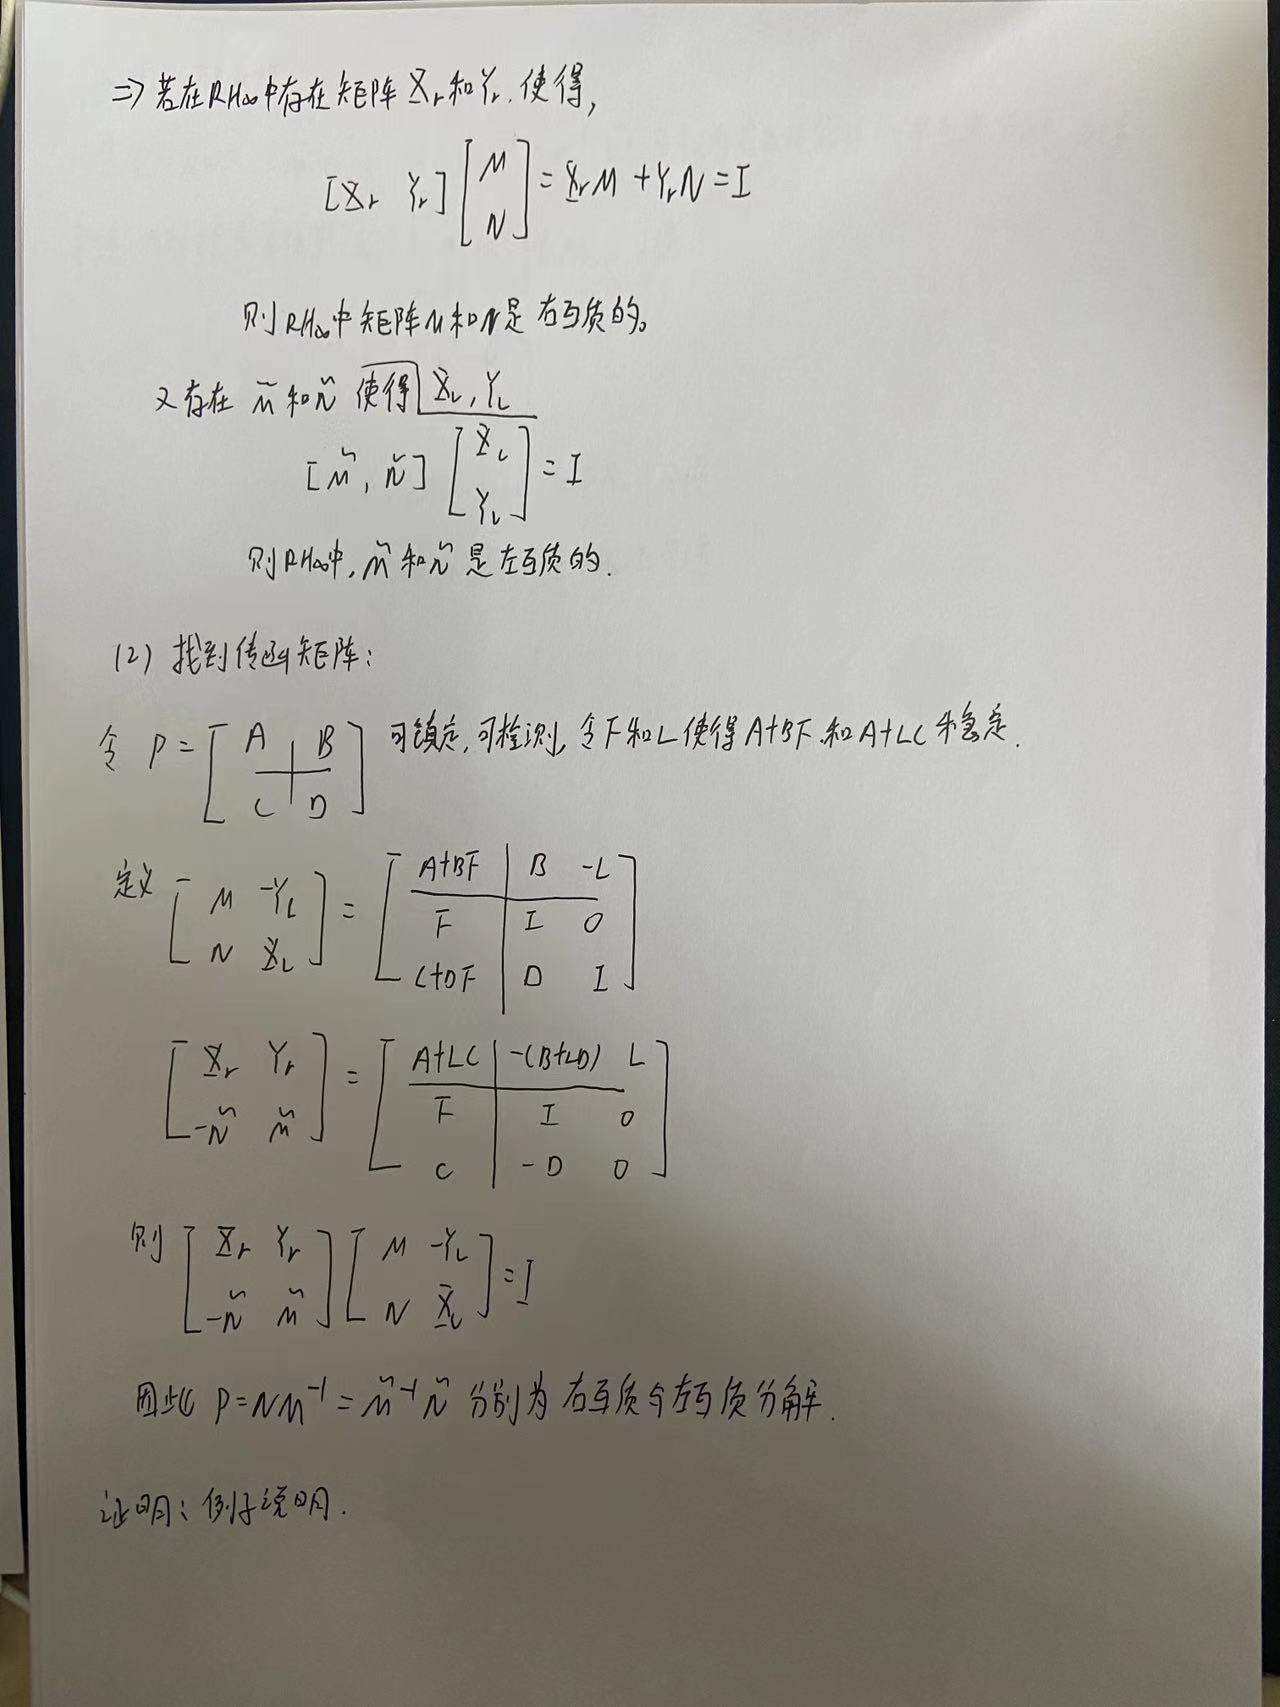 ⇒ 若在RH∞中存在矩阵 X_r和Y_r, 使得,
[X_r Y_r] [M; N] = X_rM + Y_rN = I
则RH∞中矩阵M和N是右互质的。
又存在 M̃ 和Ñ 使得 X_L, Y_L
[M̃, Ñ] [X_L; Y_L] = I
则RH∞中, M̃ 和Ñ 是左互质的.
(2) 找到传函矩阵:
令 P = [A | B; C | D] 可镇定, 可检测, 令F和L使得A+BF和A+LC 稳定.
定义 [M -Y_L; N X_L] = [A+BF | B -L; F | I 0; C+DF | D I]
[X_r Y_r; -Ñ M̃] = [A+LC | -(B+LD) L; F | I 0; C | -D 0]
则 [X_r Y_r; -Ñ M̃] [M -Y_L; N X_L] = I
因此 P=NM⁻¹ = M̃⁻¹Ñ 分别为 右互质与左互质分解.
证明: 例子说明.